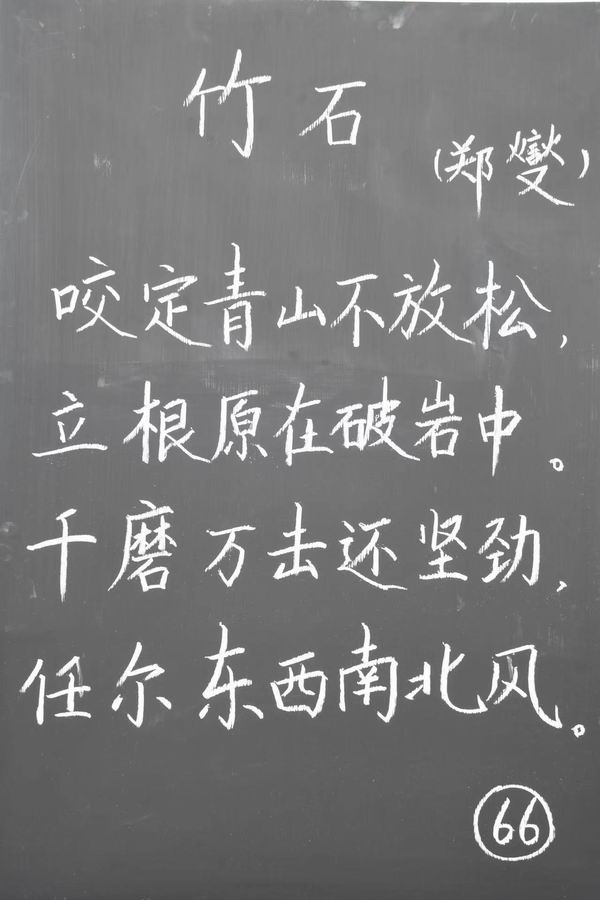 竹石
(郑燮)
咬定青山不放松,
立根原在破岩中。
千磨万击还坚劲,
任尔东西南北风。
66